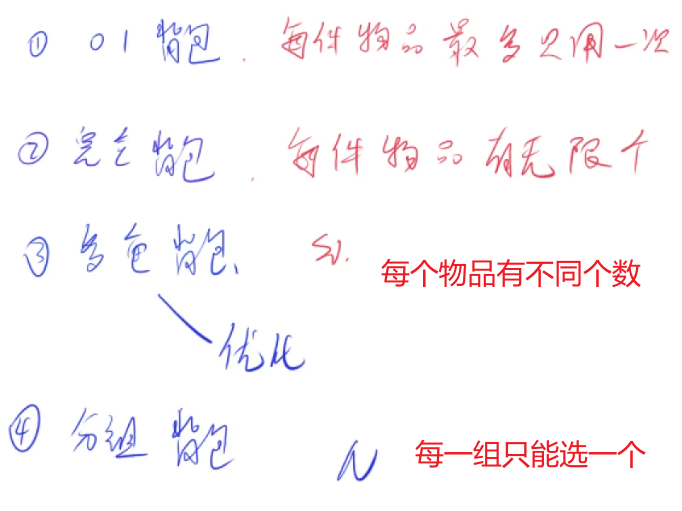 ① 01背包. 每件物品最多只用一次
② 完全背包. 每件物品有无限个
③ 多重背包、 Si. 每个物品有不同个数
优化
④ 分组背包 N 每一组只能选一个